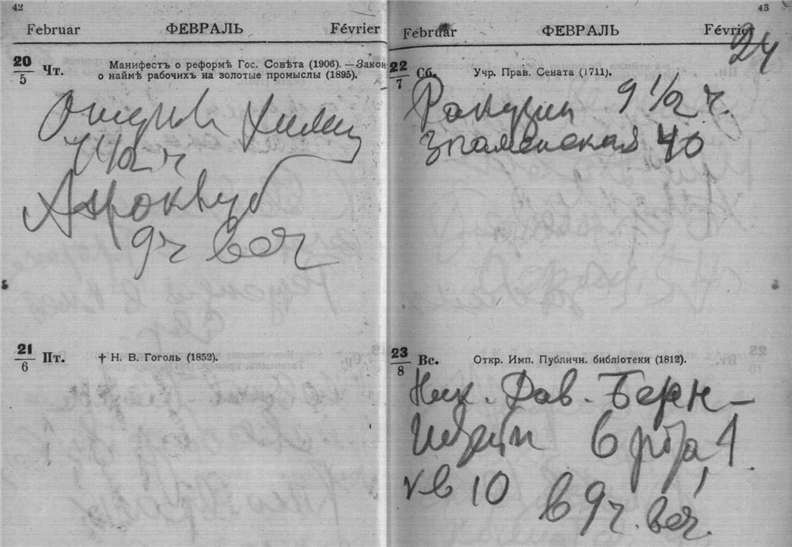 42
Februar ФЕВРАЛЬ Février
20/5 Чт. Манифестъ о реформѣ Гос. Совѣта (1906). — Закон
о наймѣ рабочихъ на золотые промыслы (1895).
7 1/2 ч
Аэроклуб
9 ч веч
21/6 Пт. † Н. В. Гоголь (1852).
43
Februar ФЕВРАЛЬ Février
24
22/7 Сб. Учр. Прав. Сената (1711).
9 1/2 ч.
Знаменская 40
23/8 Вс. Откр. Имп. Публичн. библіотеки (1812).
Ник. Дав. Берн-
штейн 6 рота, 1.
кв 10 в 9 ч. веч.